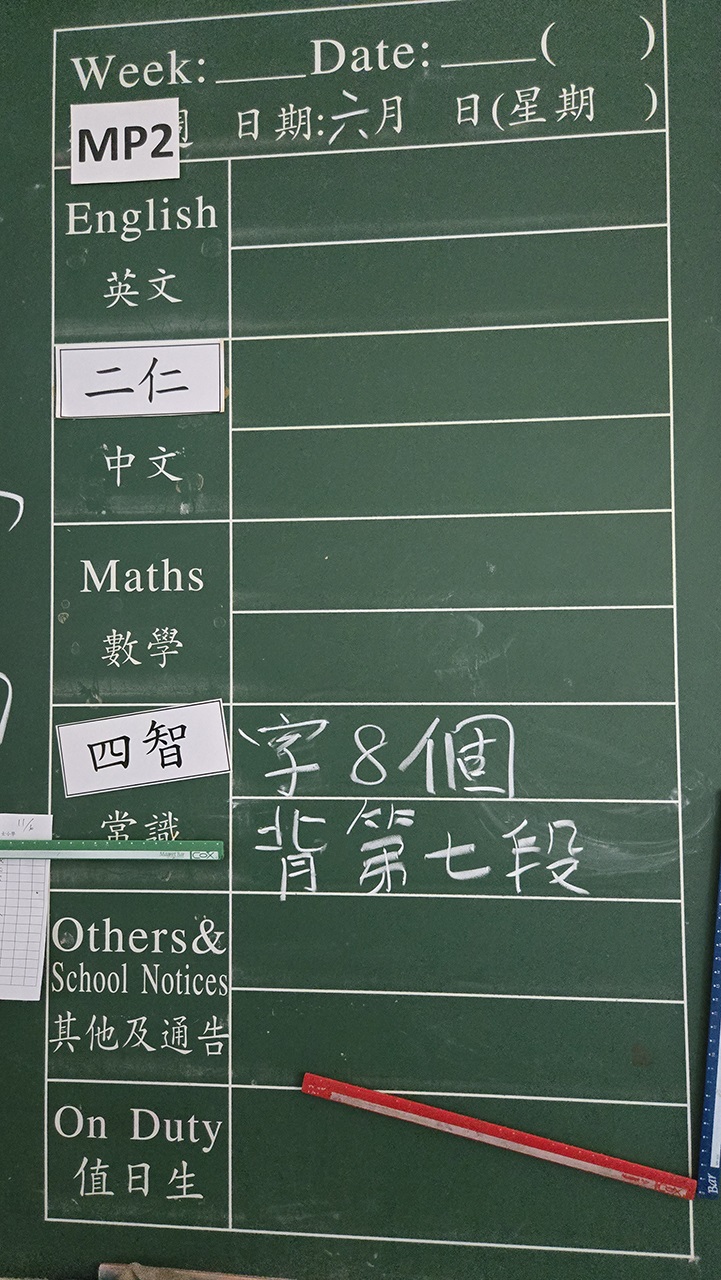 Week: ____ Date: ____ ( )
週 日期:六月 日(星期 )
MP2
English
英文
二仁
中文
Maths
數學
四智
字8個
常識
背第七段
COX
Others&
School Notices
其他及通告
On Duty
值日生